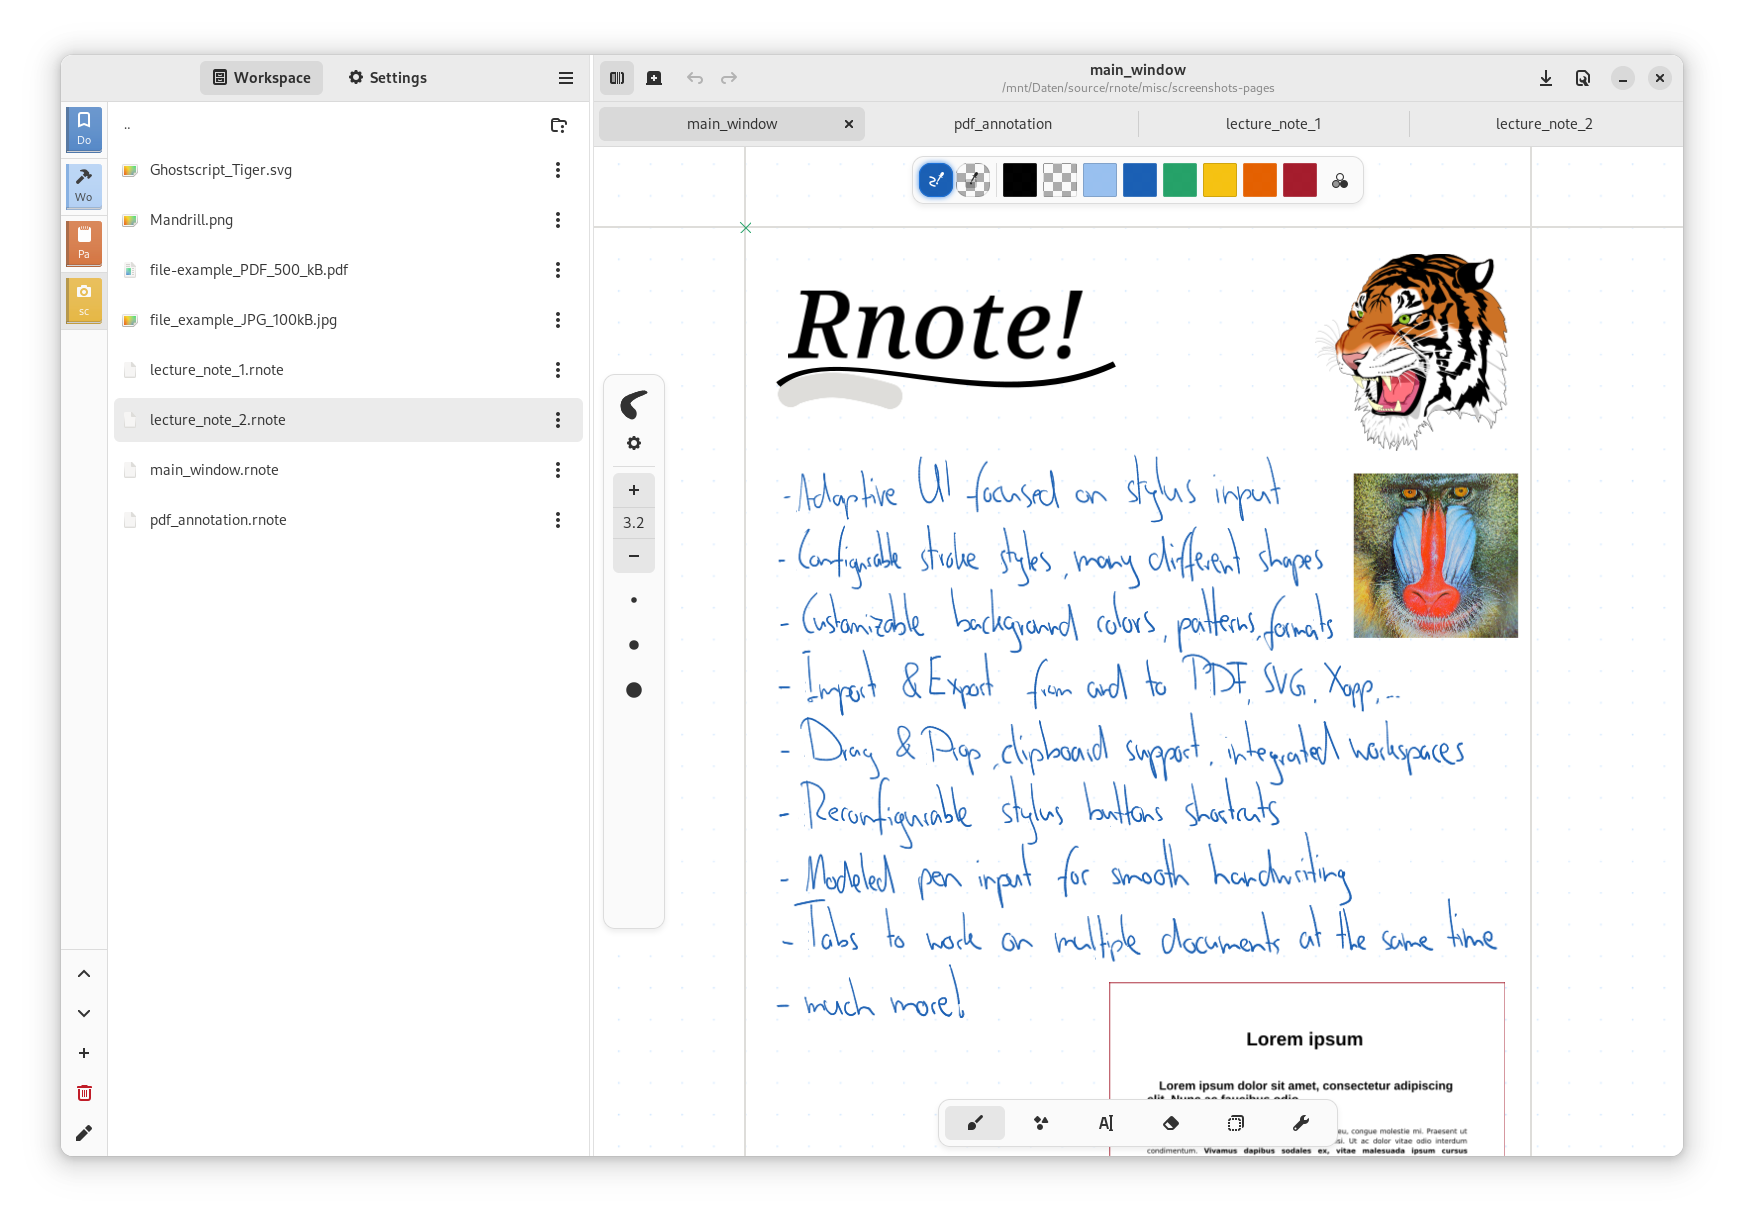 Workspace
Settings
main_window
/mnt/Daten/source/rnote/misc/screenshots-pages
Do
Wo
Pa
sc
..
Ghostscript_Tiger.svg
Mandrill.png
file-example_PDF_500_kB.pdf
file_example_JPG_100kB.jpg
lecture_note_1.rnote
lecture_note_2.rnote
main_window.rnote
pdf_annotation.rnote
main_window
pdf_annotation
lecture_note_1
lecture_note_2
+
3.2
−
Rnote!
- Adaptive UI focused on stylus input
- Configurable stroke styles, many different shapes
- Customizable background colors, patterns, formats
- Import & Export from and to PDF, SVG, Xopp, ...
- Drag & Drop, clipboard support, integrated workspaces
- Reconfigurable stylus buttons shortcuts
- Modeled pen input for smooth handwriting
- Tabs to work on multiple documents at the same time
- much more!
Lorem ipsum
Lorem ipsum dolor sit amet, consectetur adipiscing
elit. Nunc ac faucibus odio.
eu, congue molestie mi. Praesent ut
si. Ut ac dolor vitae odio interdum
condimentum. Vivamus dapibus sodales ex, vitae malesuada ipsum cursus
AI